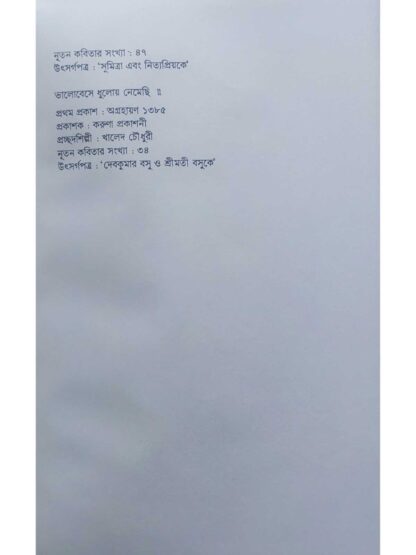 নূতন কবিতার সংখ্যা : ৪৭
উৎসর্গপত্র : 'সুমিত্রা এবং নিত্যপ্রিয়কে'
ভালোবেসে ধুলোয় নেমেছি ॥
প্রথম প্রকাশ : অগ্রহায়ণ ১৩৮৫
প্রকাশক : করুণা প্রকাশনী
প্রচ্ছদশিল্পী : খালেদ চৌধুরী
নূতন কবিতার সংখ্যা : ৩৪
উৎসর্গপত্র : 'দেবকুমার বসু ও শ্রীমতী বসুকে'